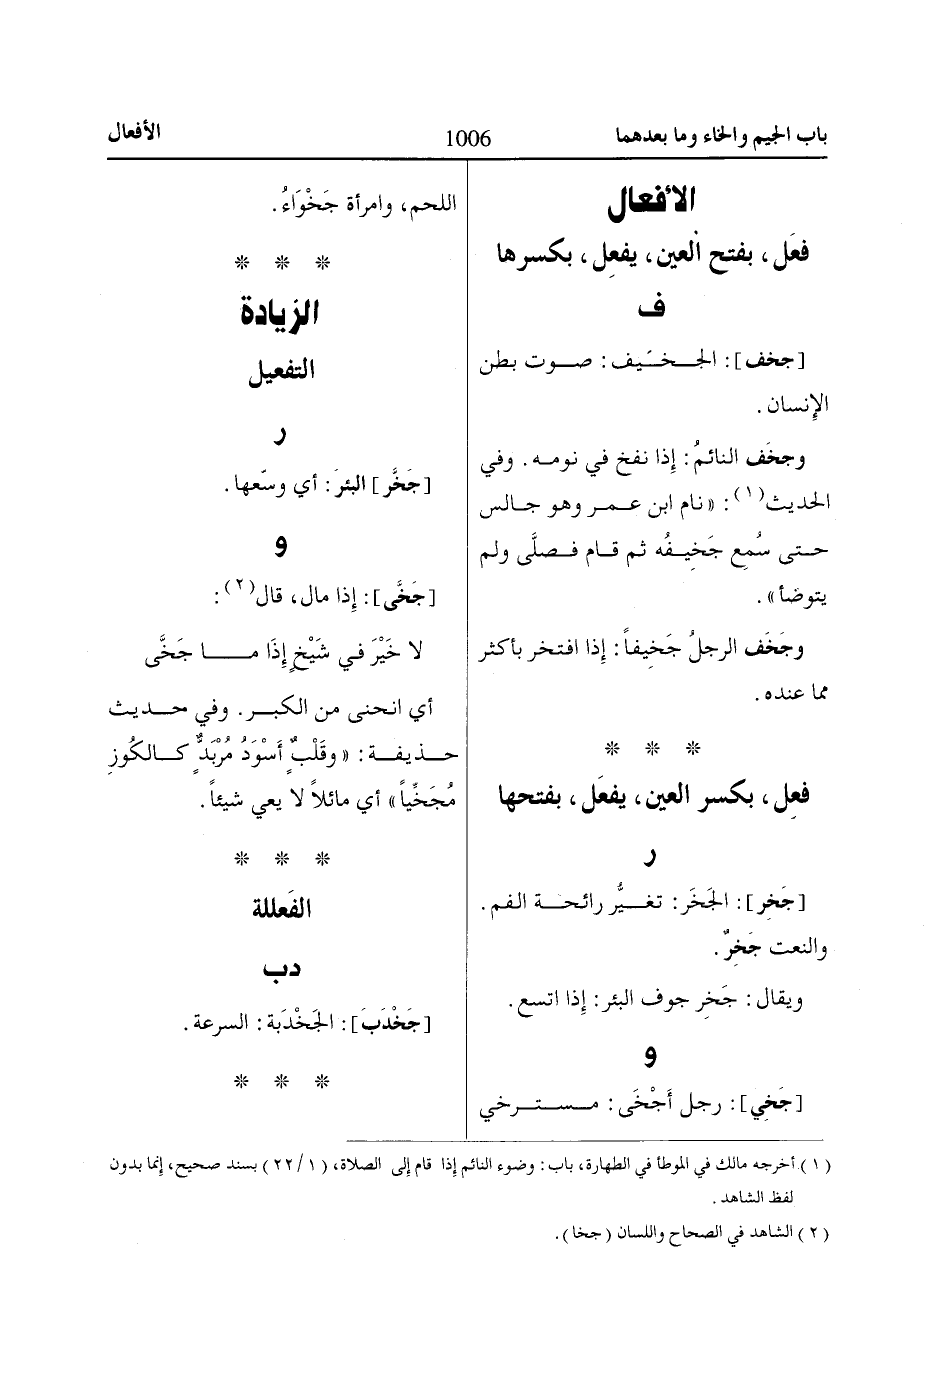 باب الجيم والخاء وما بعدهما 1006 الأفعال
الأفعال
فعَل، بفتح العين، يفعِل، بكسرها
ف
[جخف]: الجـخـيف: صوت بطن
الإنسان.
وجخَف النائمُ: إذا نفخ في نومه. وفي
الحديث(١): «نام ابن عمر وهو جالس
حتى سُمِع جَخيفُه ثم قام فصلَّى ولم
يتوضأ».
وجَخَف الرجلُ جَخيفاً: إذا افتخر بأكثر
مما عنده.
* * *
فعِل، بكسر العين، يفعَل، بفتحها
ر
[جَخِر]: الجَخَر: تغيُّر رائحة الفم.
والنعت جَخِرٌ.
ويقال: جَخِر جوف البئر: إذا اتسع.
و
[جَخِي]: رجل أَجْخَى: مسترخي
اللحم، وامرأة جَخْوَاءُ.
* * *
الزيادة
التفعيل
ر
[جَخَّر] البئرَ: أي وسّعها.
و
[جَخَّى]: إذا مال، قال(٢):
لا خَيْرَ في شَيْخٍ إِذَا مــا جَخَّى
أي انحنى من الكبر. وفي حديث
حذيفة: «وقَلْبٌ أَسْوَدُ مُرْبَدٌّ كالكُوزِ
مُجَخِّياً» أي مائلاً لا يعي شيئاً.
* * *
الفَعللة
دب
[جَخْدَبَ]: الجَخْدَبة: السرعة.
* * *
(١) أخرجه مالك في الموطأ في الطهارة، باب: وضوء النائم إذا قام إلى الصلاة، (٢٢/١) بسند صحيح، إنما بدون
لفظ الشاهد.
(٢) الشاهد في الصحاح واللسان (جخا).